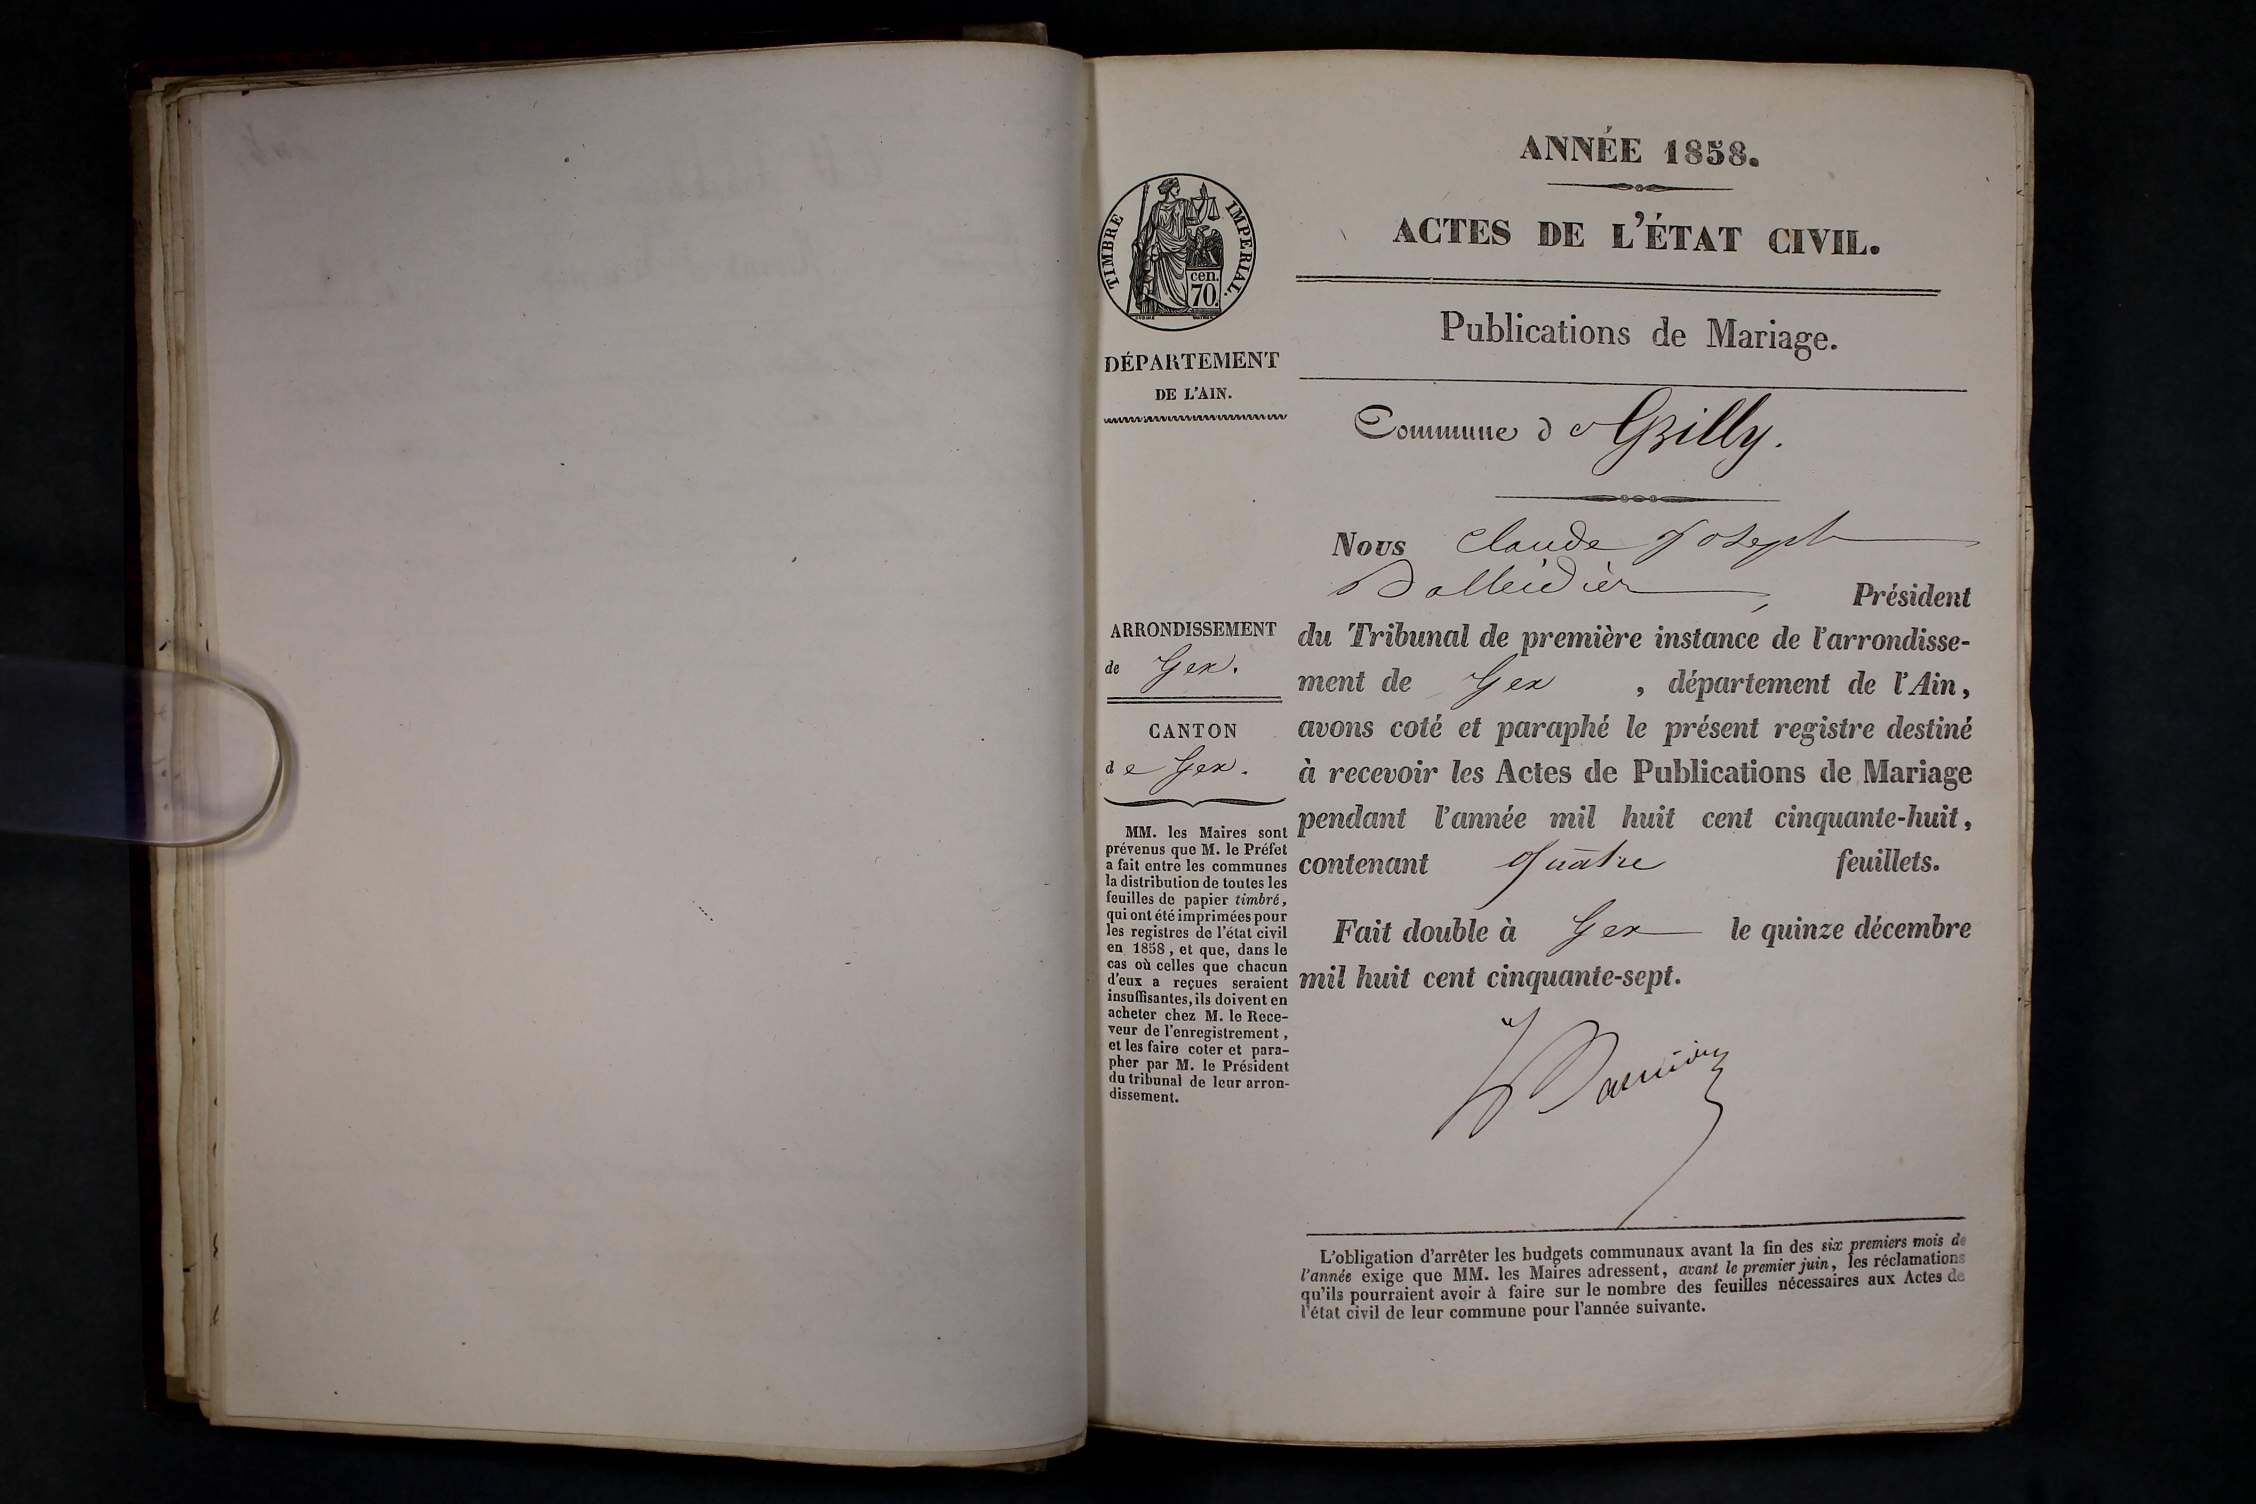 ANNÉE 1858.
ACTES DE L'ÉTAT CIVIL.
Publications de Mariage.
TIMBRE IMPERIAL.
cen.
70.
DÉPARTEMENT
DE L'AIN.
ARRONDISSEMENT
de Gex.
CANTON
de Gex.
MM. les Maires sont
prévenus que M. le Préfet
a fait entre les communes
la distribution de toutes les
feuilles de papier timbré,
qui ont été imprimées pour
les registres de l'état civil
en 1858, et que, dans le
cas où celles que chacun
d'eux a reçues seraient
insuffisantes, ils doivent en
acheter chez M. le Rece-
veur de l'enregistrement,
et les faire coter et para-
pher par M. le Président
du tribunal de leur arron-
dissement.
Commune de Grilly.
Nous Claude Joseph
, Président
du Tribunal de première instance de l'arrondisse-
ment de Gex, département de l'Ain,
avons coté et paraphé le présent registre destiné
à recevoir les Actes de Publications de Mariage
pendant l'année mil huit cent cinquante-huit,
contenant quatre feuillets.
Fait double à Gex le quinze décembre
mil huit cent cinquante-sept.
L'obligation d'arrêter les budgets communaux avant la fin des six premiers mois de
l'année exige que MM. les Maires adressent, avant le premier juin, les réclamations
qu'ils pourraient avoir à faire sur le nombre des feuilles nécessaires aux Actes de
l'état civil de leur commune pour l'année suivante.